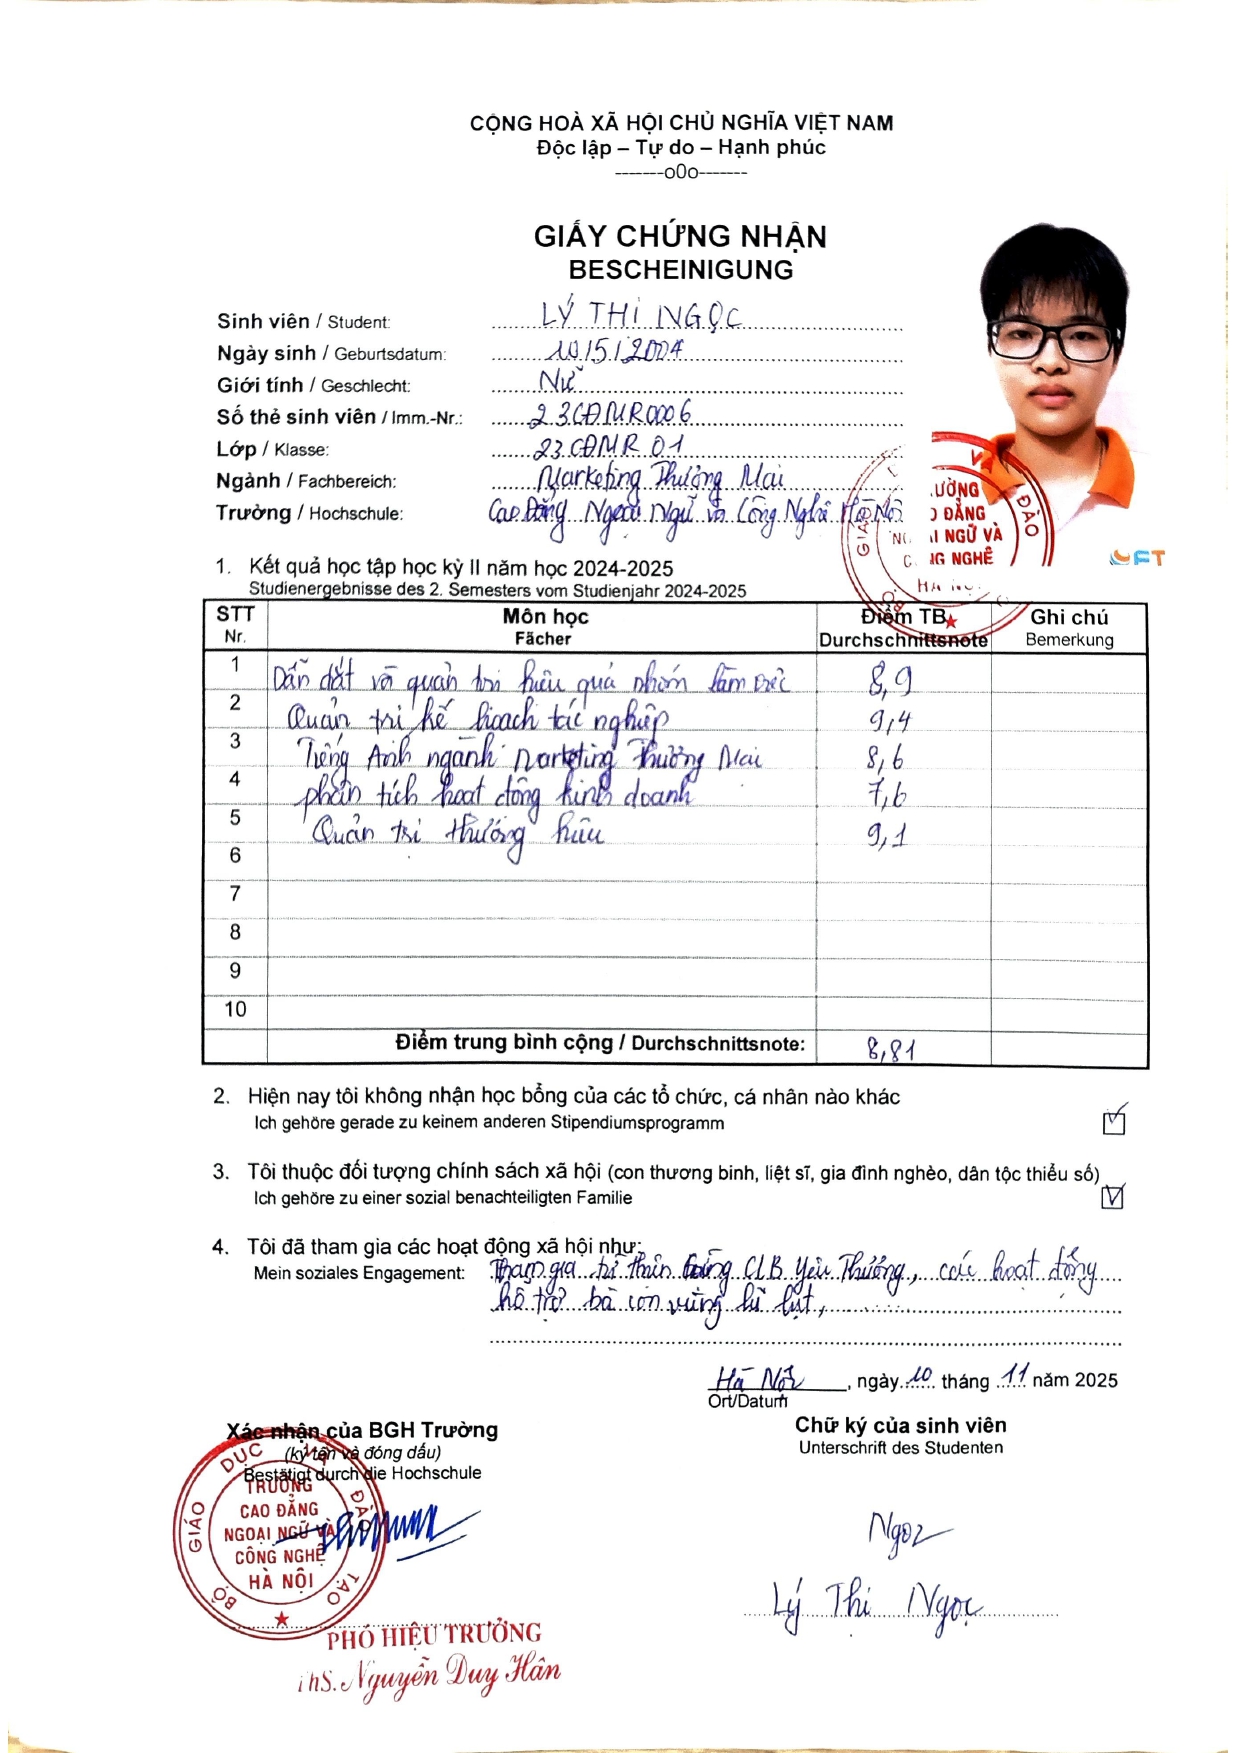 CỘNG HOÀ XÃ HỘI CHỦ NGHĨA VIỆT NAM
Độc lập – Tự do – Hạnh phúc
-------o0o-------
GIẤY CHỨNG NHẬN
BESCHEINIGUNG
Sinh viên / Student: LÝ THỊ NGỌC
Ngày sinh / Geburtsdatum: 10/5/2004
Giới tính / Geschlecht: Nữ
Số thẻ sinh viên / Imm.-Nr.: 23CĐMR0006
Lớp / Klasse: 23CĐMR 01
Ngành / Fachbereich: Marketing Thương Mại
Trường / Hochschule: Cao Đẳng Ngoại Ngữ và Công Nghệ Hà Nội
1. Kết quả học tập học kỳ II năm học 2024-2025
Studienergebnisse des 2. Semesters vom Studienjahr 2024-2025
STT Môn học Điểm TB Ghi chú
Nr. Fächer Durchschnittsnote Bemerkung
1 Dẫn dắt và quản trị hiệu quả nhóm làm việc 8,9
2 Quản trị kế hoạch tác nghiệp 9,4
3 Tiếng Anh ngành Marketing Thương Mại 8,6
4 phân tích hoạt động kinh doanh 7,6
5 Quản trị thương hiệu 9,1
6
7
8
9
10
Điểm trung bình cộng / Durchschnittsnote: 8,81
2. Hiện nay tôi không nhận học bổng của các tổ chức, cá nhân nào khác
Ich gehöre gerade zu keinem anderen Stipendiumsprogramm
3. Tôi thuộc đối tượng chính sách xã hội (con thương binh, liệt sĩ, gia đình nghèo, dân tộc thiểu số)
Ich gehöre zu einer sozial benachteiligten Familie
4. Tôi đã tham gia các hoạt động xã hội như:
Mein soziales Engagement: Tham gia từ thiện cùng CLB Yêu Thương, các hoạt động
hỗ trợ bà con vùng lũ lụt,
Hà Nội, ngày 10 tháng 11 năm 2025
Ort/Datum
Xác nhận của BGH Trường
(ký tên và đóng dấu)
Bestätigt durch die Hochschule
Chữ ký của sinh viên
Unterschrift des Studenten
BỘ GIÁO DỤC VÀ ĐÀO TẠO
TRƯỜNG
CAO ĐẲNG
NGOẠI NGỮ VÀ
CÔNG NGHỆ
HÀ NỘI
Ngọc
Lý Thị Ngọc
PHÓ HIỆU TRƯỞNG
ThS. Nguyễn Duy Hân